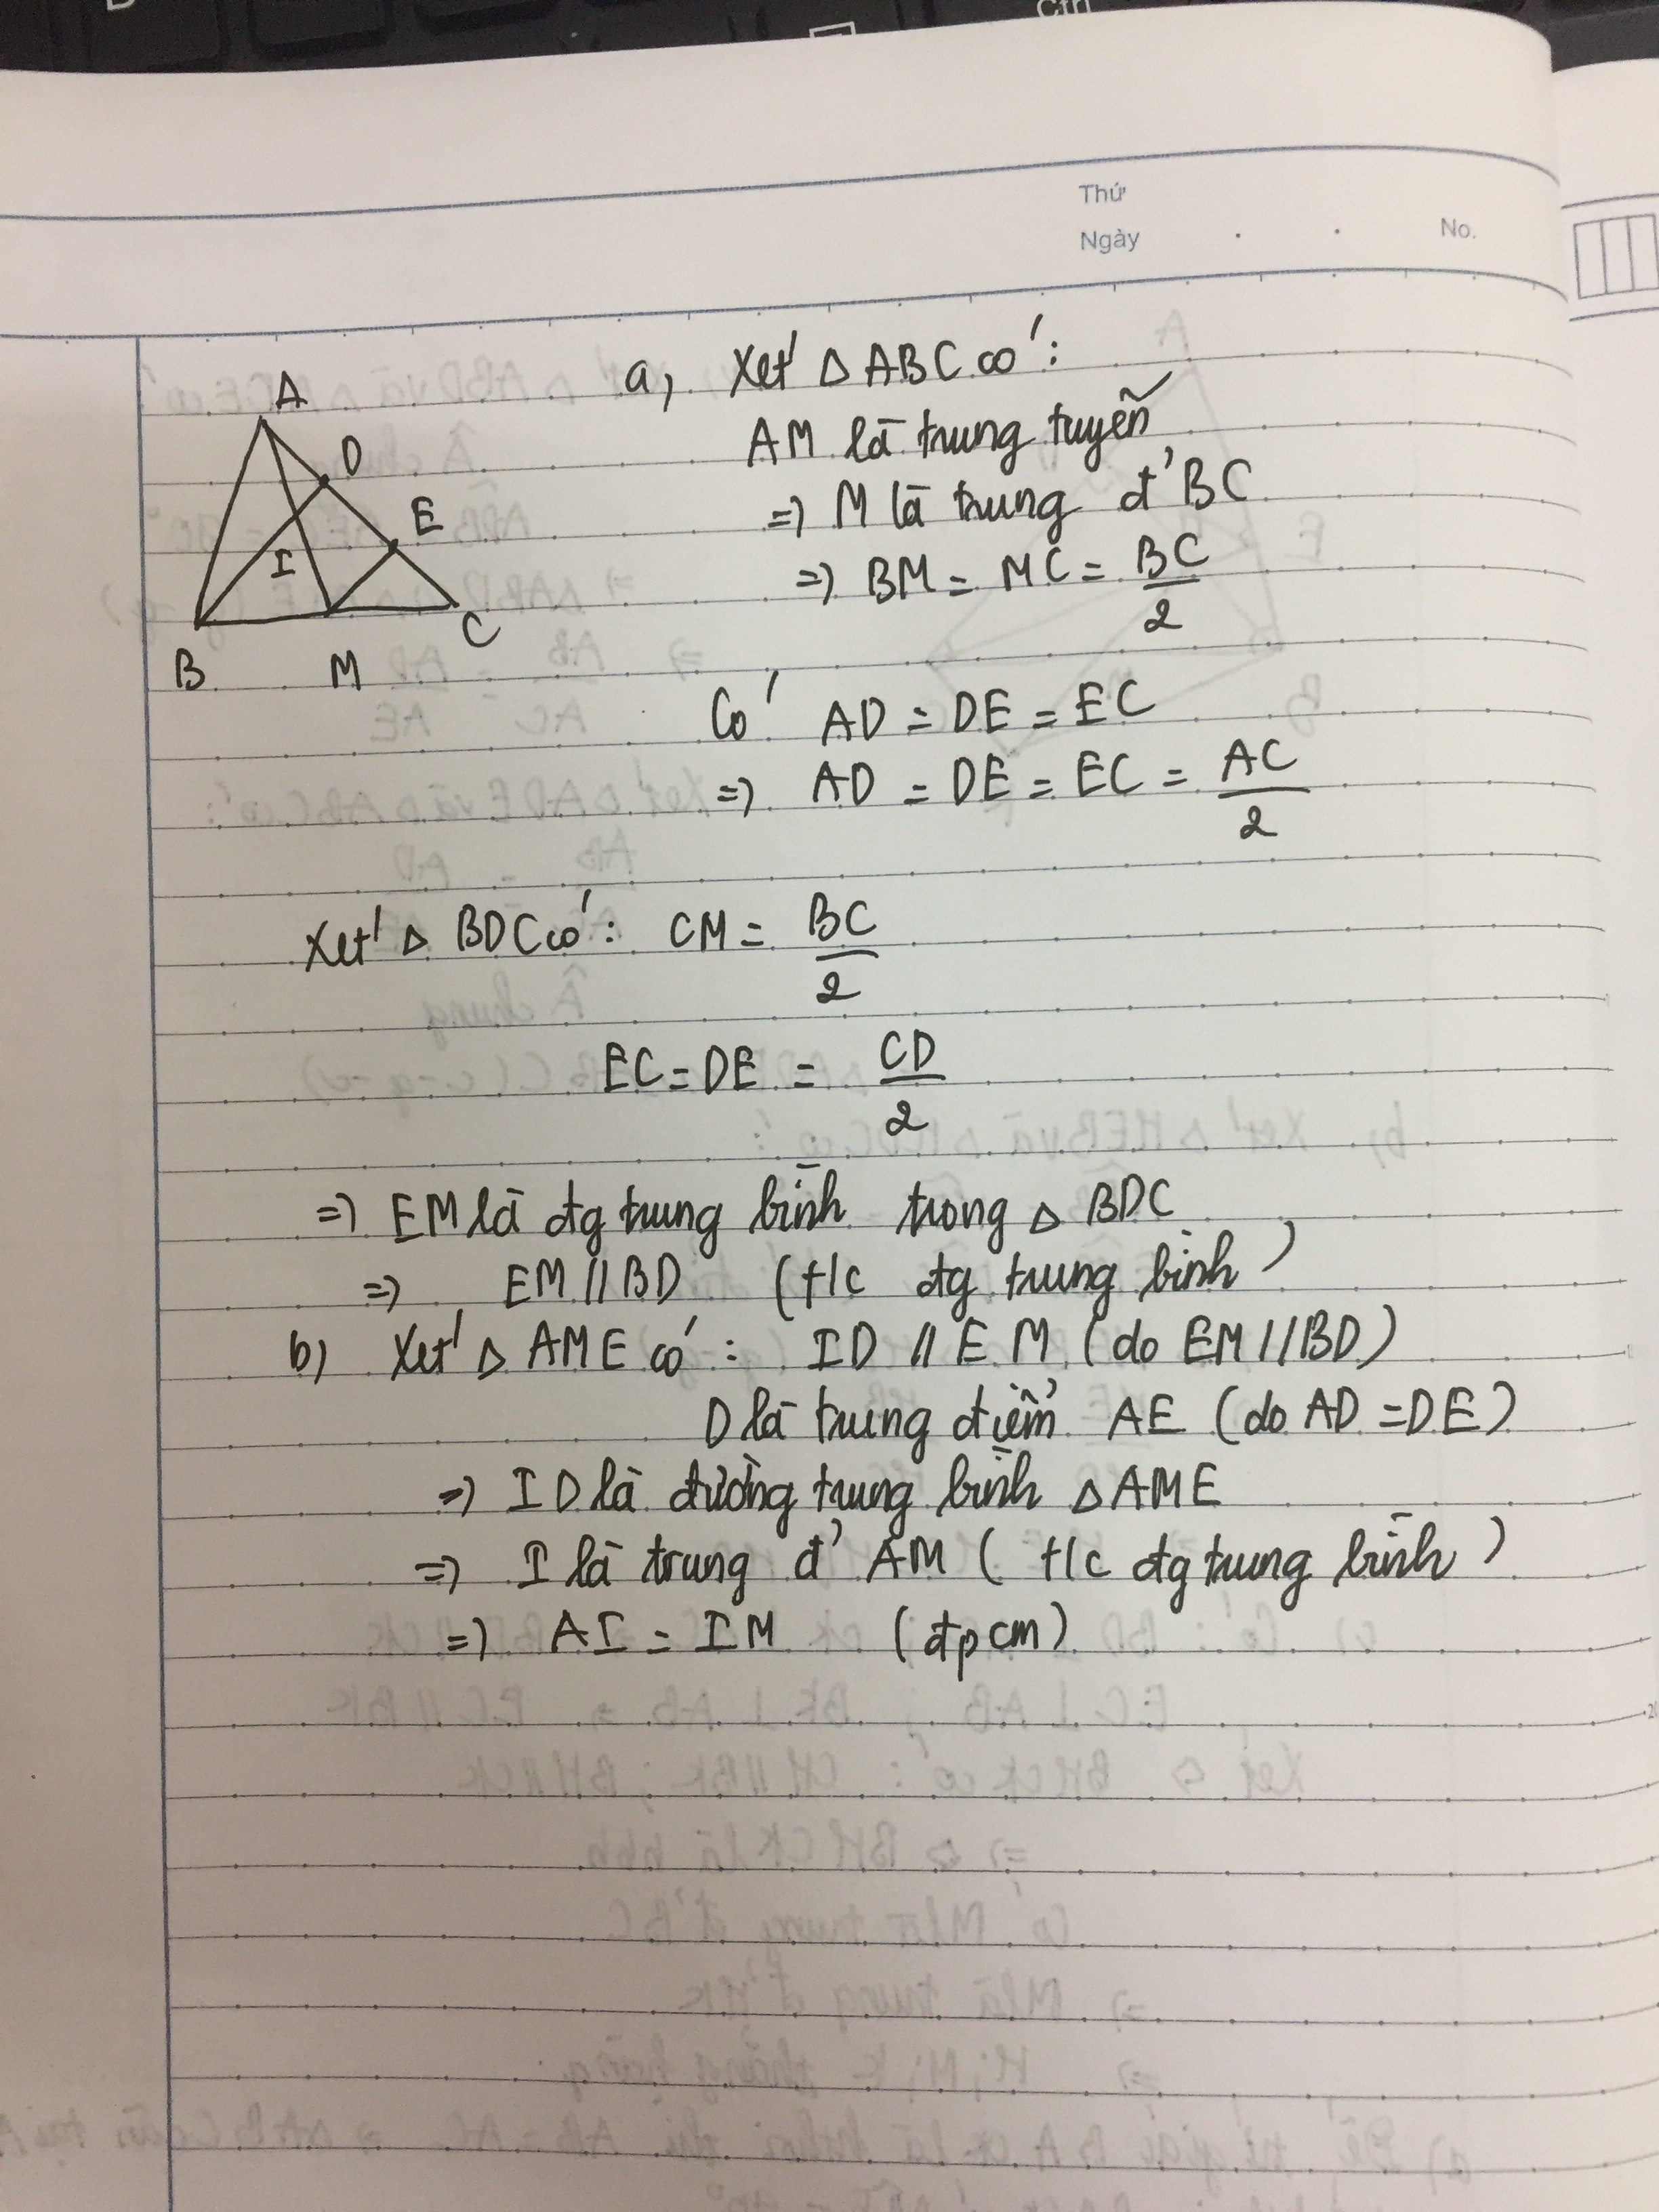 Ctrl
Thứ
Ngày
No.
a, Xét Δ ABC có:
AM là trung tuyến
=) M là trung đ' BC
=) BM = MC = BC/2
A
D
E
I
B
M
C
Có AD = DE = EC
=) AD = DE = EC = AC/2
Xét Δ BDC có: CM = BC/2
EC = DE = CD/2
=) EM là đg trung bình trong Δ BDC
=) EM // BD (t/c đg trung bình)
b) Xét Δ AME có: ID // EM (do EM // BD)
D là trung điểm AE (do AD = DE)
=) ID là đường trung bình Δ AME
=) I là trung đ' AM (t/c đg trung bình)
=) AI = IM (đpcm)